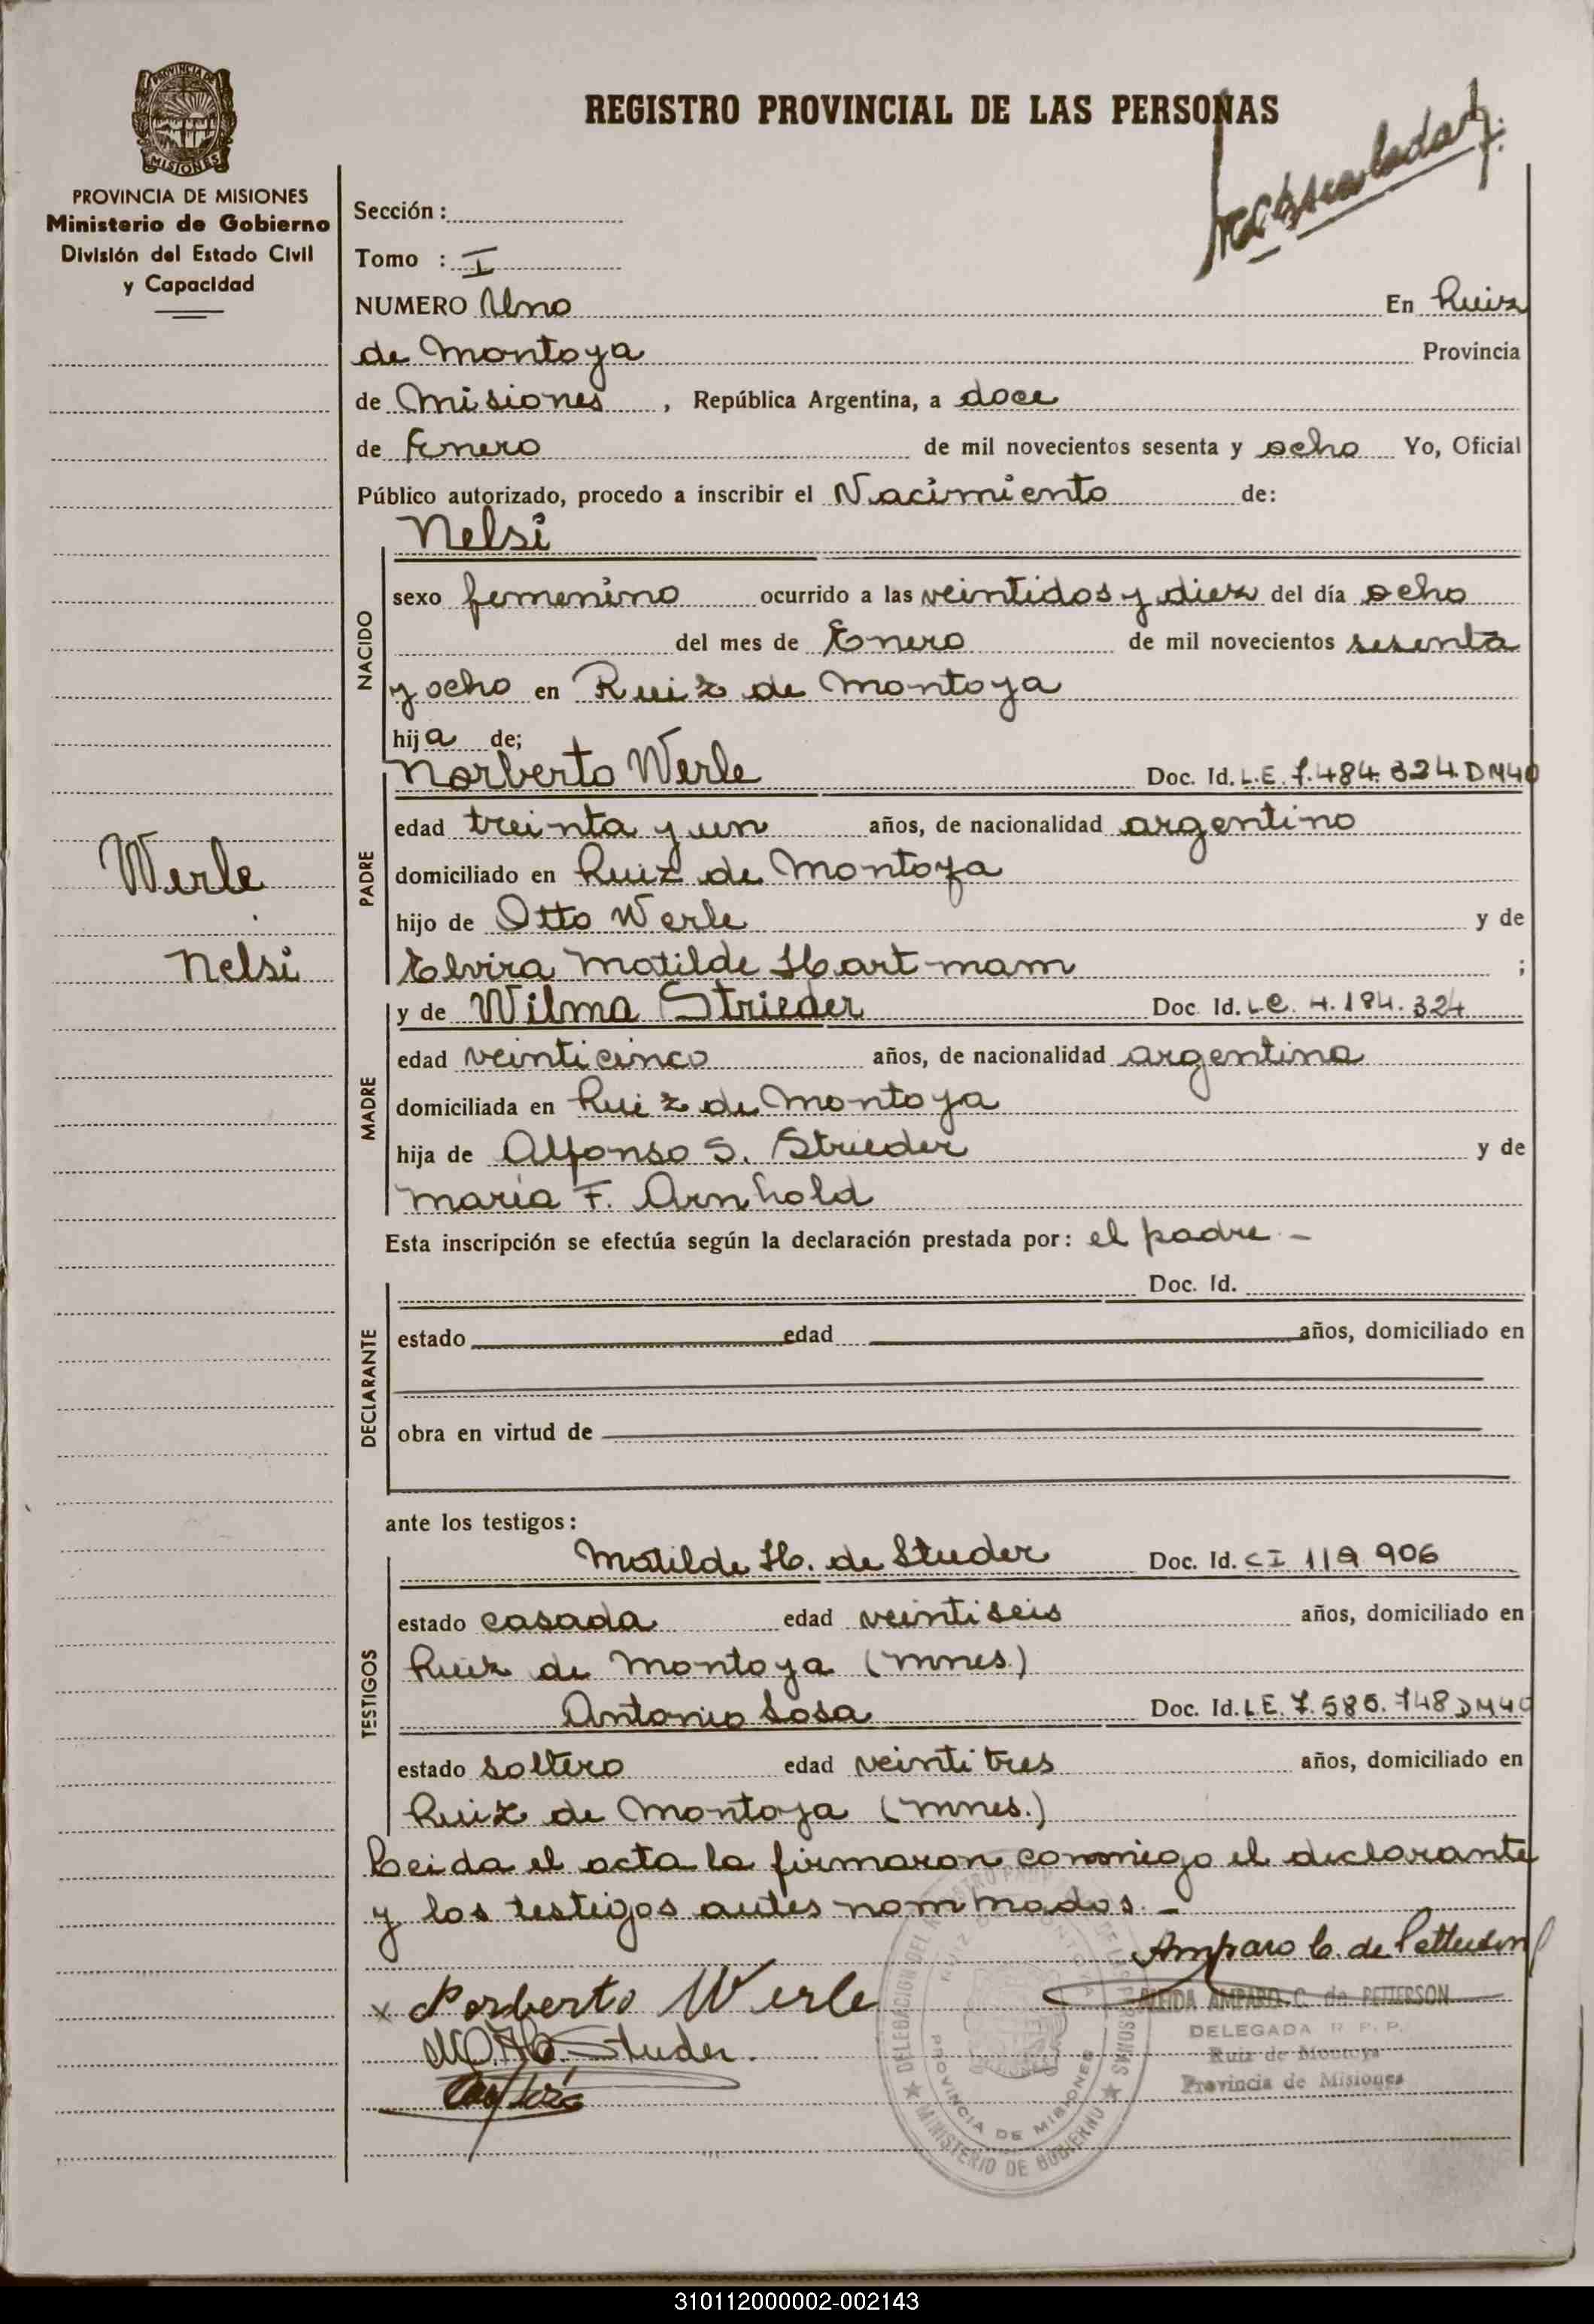 PROVINCIA DE
MISIONES
PROVINCIA DE MISIONES
Ministerio de Gobierno
División del Estado Civil
y Capacidad
Werle
Nelsi
REGISTRO PROVINCIAL DE LAS PERSONAS
Sección :
Tomo : I
NUMERO Uno En Ruiz
de Montoya Provincia
de Misiones , República Argentina, a doce
de Enero de mil novecientos sesenta y ocho Yo, Oficial
Público autorizado, procedo a inscribir el Nacimiento de:
Nelsi
NACIDO
sexo femenino ocurrido a las veintidos y diez del día ocho
del mes de Enero de mil novecientos sesenta
y ocho en Ruiz de Montoya
hija de;
PADRE
Norberto Werle Doc. Id. L.E. 7.484.324 DM40
edad treinta y un años, de nacionalidad argentino
domiciliado en Ruiz de Montoya
hijo de Otto Werle y de
Elvira Matilde Hart mam ;
MADRE
y de Wilma Strieder Doc. Id. L.C. 4.184.324
edad veinticinco años, de nacionalidad argentina
domiciliada en Ruiz de Montoya
hija de Alfonso S. Strieder y de
Maria F. Arnhold
Esta inscripción se efectúa según la declaración prestada por: el padre –
DECLARANTE
Doc. Id.
estado edad años, domiciliado en
obra en virtud de
ante los testigos:
TESTIGOS
Matilde H. de Studer Doc. Id. CI 119 906
estado casada edad veintiseis años, domiciliado en
Ruiz de Montoya (Mnes.)
Antonio Sosa Doc. Id. L.E. 7.585.748 DM40
estado soltero edad veintitres años, domiciliado en
Ruiz de Montoya (Mnes.)
Leida el acta la firmaron conmigo el declarante
y los testigos antes nommados. –
Amparo C. de Petterson
x Norberto Werle
Studer.
ALEIDA AMPARO C. de PETTERSON
DELEGADA R. P. P.
Ruiz de Montoya
Provincia de Misiones
DELEGACION DEL REGISTRO PROV. DE LAS PERSONAS
RUIZ DE MONTOYA
PROVINCIA DE MISIONES
MINISTERIO DE GOBIERNO
310112000002-002143